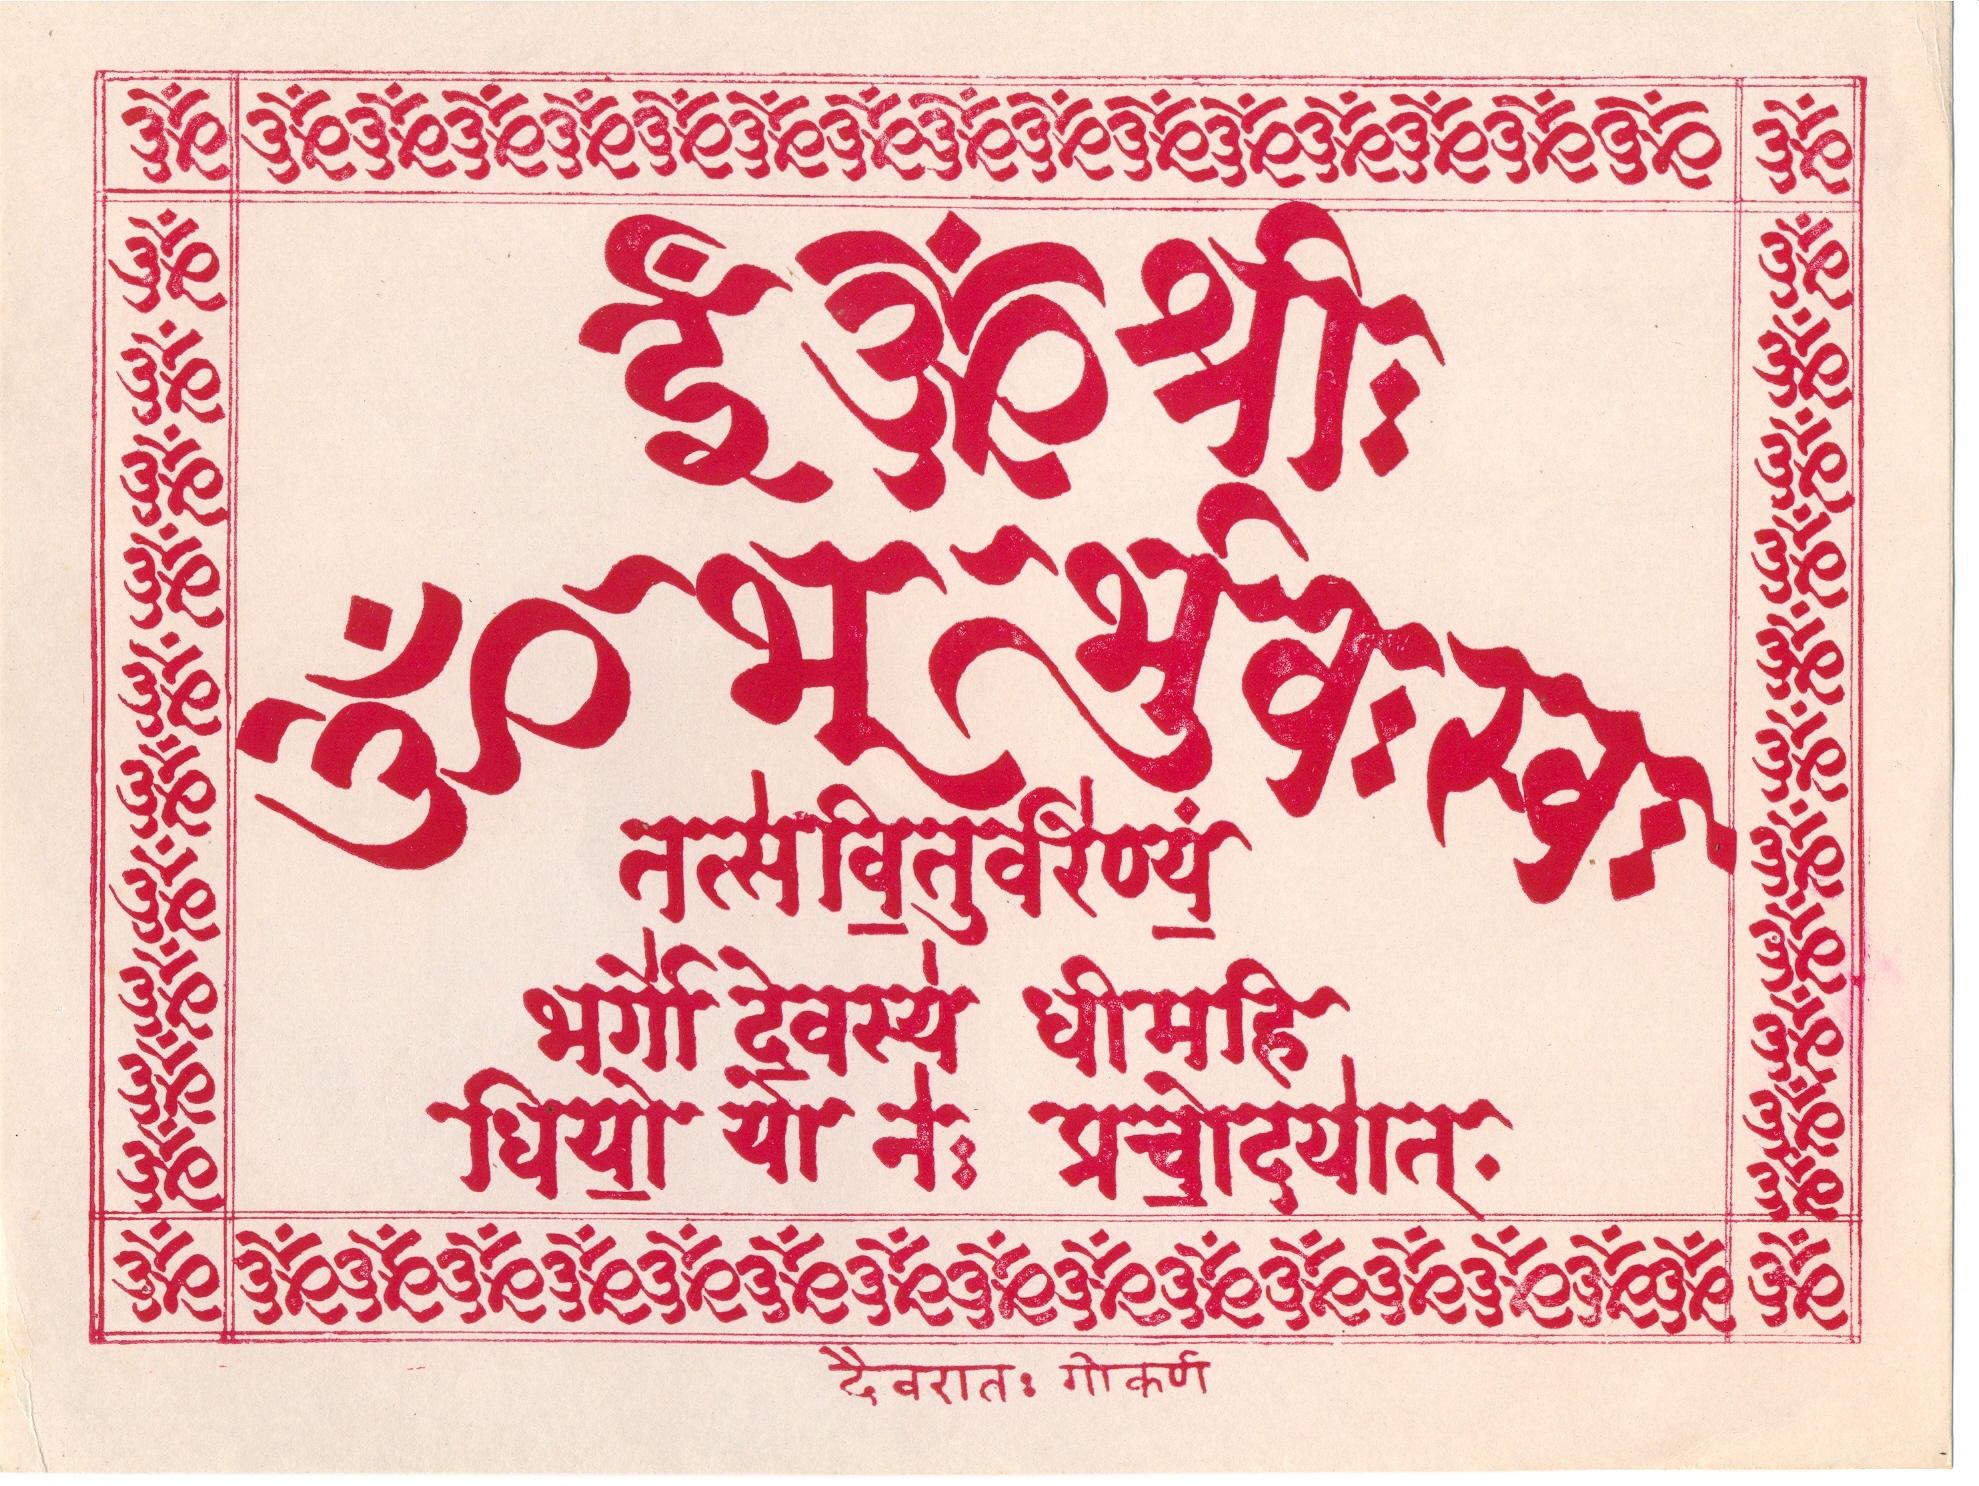 ईँ ॐ श्रीः
ॐ भूर्भुवः स्वः
तत्स॑वि॒तुर्वरे॑ण्यं॒
भर्गो॑ दे॒वस्य॑ धीमहि
धियो॒ यो नः॑ प्रचो॒दया॑त्.
दैवरातः गोकर्ण